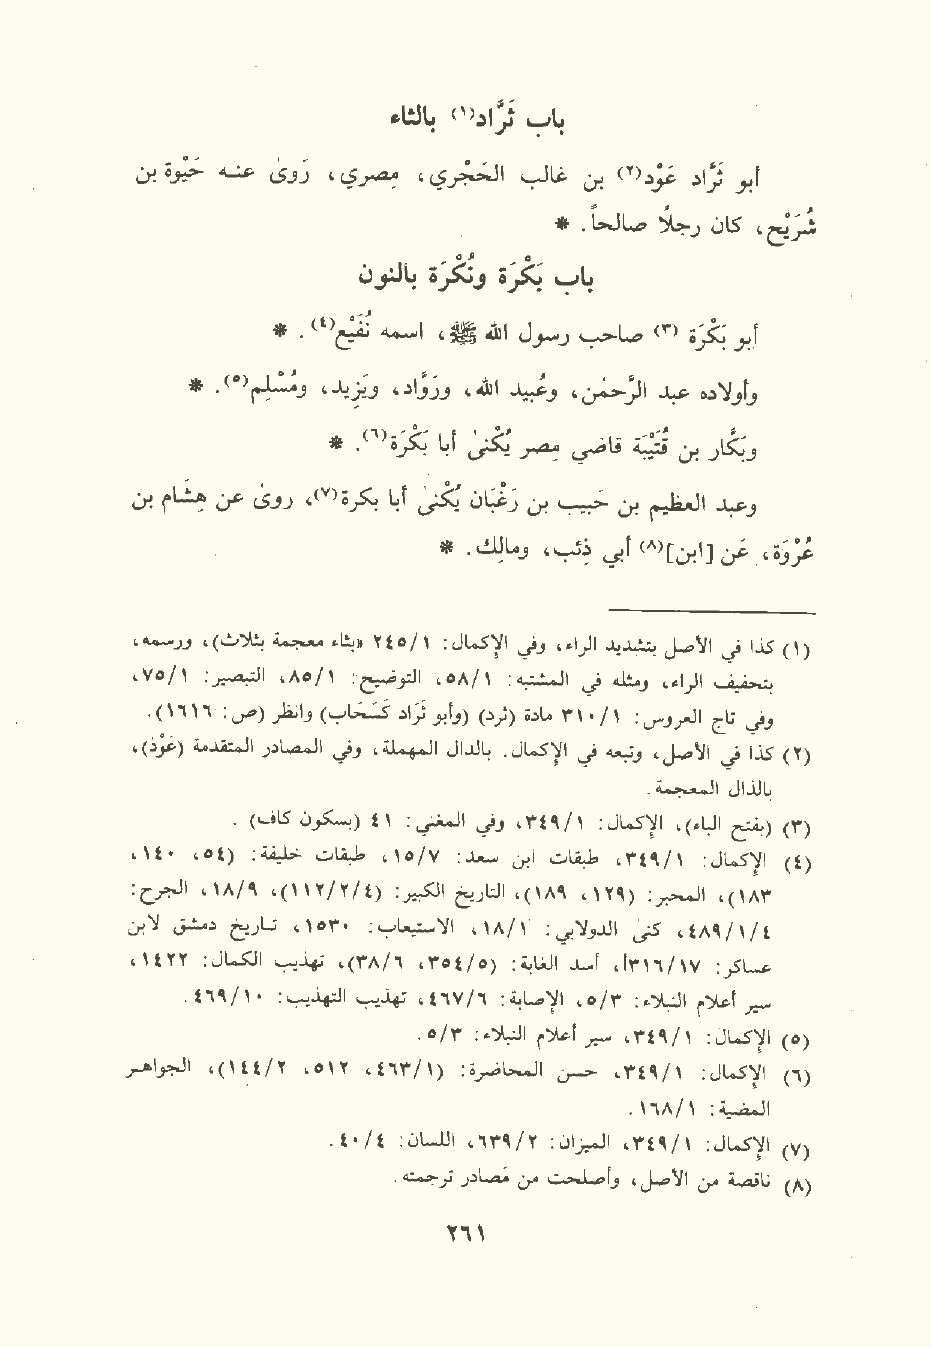 باب ثَرَّاد(١) بالثاء
أبو ثَرَّاد عَوْد(٢) بن غالب الحَجْري، مِصري، رَوىٰ عنه حَيْوة بن
شُرَيْح، كان رجلاً صالحاً. *
باب بَكْرَة ونُكْرَة بالنون
أبو بَكْرَة (٣) صاحب رسول الله ﷺ، اسمه نُفَيْع(٤). *
وأولاده عبد الرَّحمٰن، وعُبيد الله، ورَوَّاد، ويَزِيد، ومُسْلِم(٥). *
وبَكَّار بن قُتَيْبَة قاضي مصر يُكْنىٰ أبا بَكْرَة(٦). *
وعبد العظيم بن حَبيب بن رَغْبَان يُكْنىٰ أبا بكرة(٧)، روىٰ عن هِشَام بن
عُرْوَة، عَن [ابن](٨) أبي ذِئب، ومالِك. *
(١) كذا في الأصل بتشديد الراء، وفي الإكمال: ٢٤٥/١ «بثاء معجمة بثلاث)، ورسمه،
بتخفيف الراء، ومثله في المشتبه: ٥٨/١، التوضيح: ٨٥/١، التبصير: ٧٥/١،
وفي تاج العروس: ٣١٠/١ مادة (ثرد) (وأبو ثَرَاد كسَحَاب) وانظر (ص: ١٦١٦).
(٢) كذا في الأصل، وتبعه في الإكمال. بالدال المهملة، وفي المصادر المتقدمة (عَوْذ)،
بالذال المعجمة.
(٣) (بفتح الباء)، الإكمال: ٣٤٩/١، وفي المغني: ٤١ (بسكون كاف) .
(٤) الإكمال: ٣٤٩/١، طبقات ابن سعد: ١٥/٧، طبقات خليفة: (٥٤، ١٤٠،
١٨٣)، المحبر: (١٢٩، ١٨٩)، التاريخ الكبير: (١١٢/٢/٤)، ١٨/٩، الجرح:
٤٨٩/١/٤، كنىٰ الدولابي: ١٨/١، الاستيعاب: ١٥٣٠، تاريخ دمشق لابن
عساكر: ٣١٦/١٧أ، أسد الغابة: (٣٥٤/٥، ٣٨/٦)، تهذيب الكمال: ١٤٢٢،
سير أعلام النبلاء: ٥/٣، الإصابة: ٤٦٧/٦، تهذيب التهذيب: ٤٦٩/١٠.
(٥) الإكمال: ٣٤٩/١، سير أعلام النبلاء: ٥/٣.
(٦) الإكمال: ٣٤٩/١، حسن المحاضرة: (٤٦٣/١، ٥١٢، ١٤٤/٢)، الجواهر
المضية: ١٦٨/١.
(٧) الإكمال: ٣٤٩/١، الميزان: ٦٣٩/٢، اللسان: ٤٠/٤.
(٨) ناقصة من الأصل، وأصلحت من مَصادر ترجمته.
٢٦١